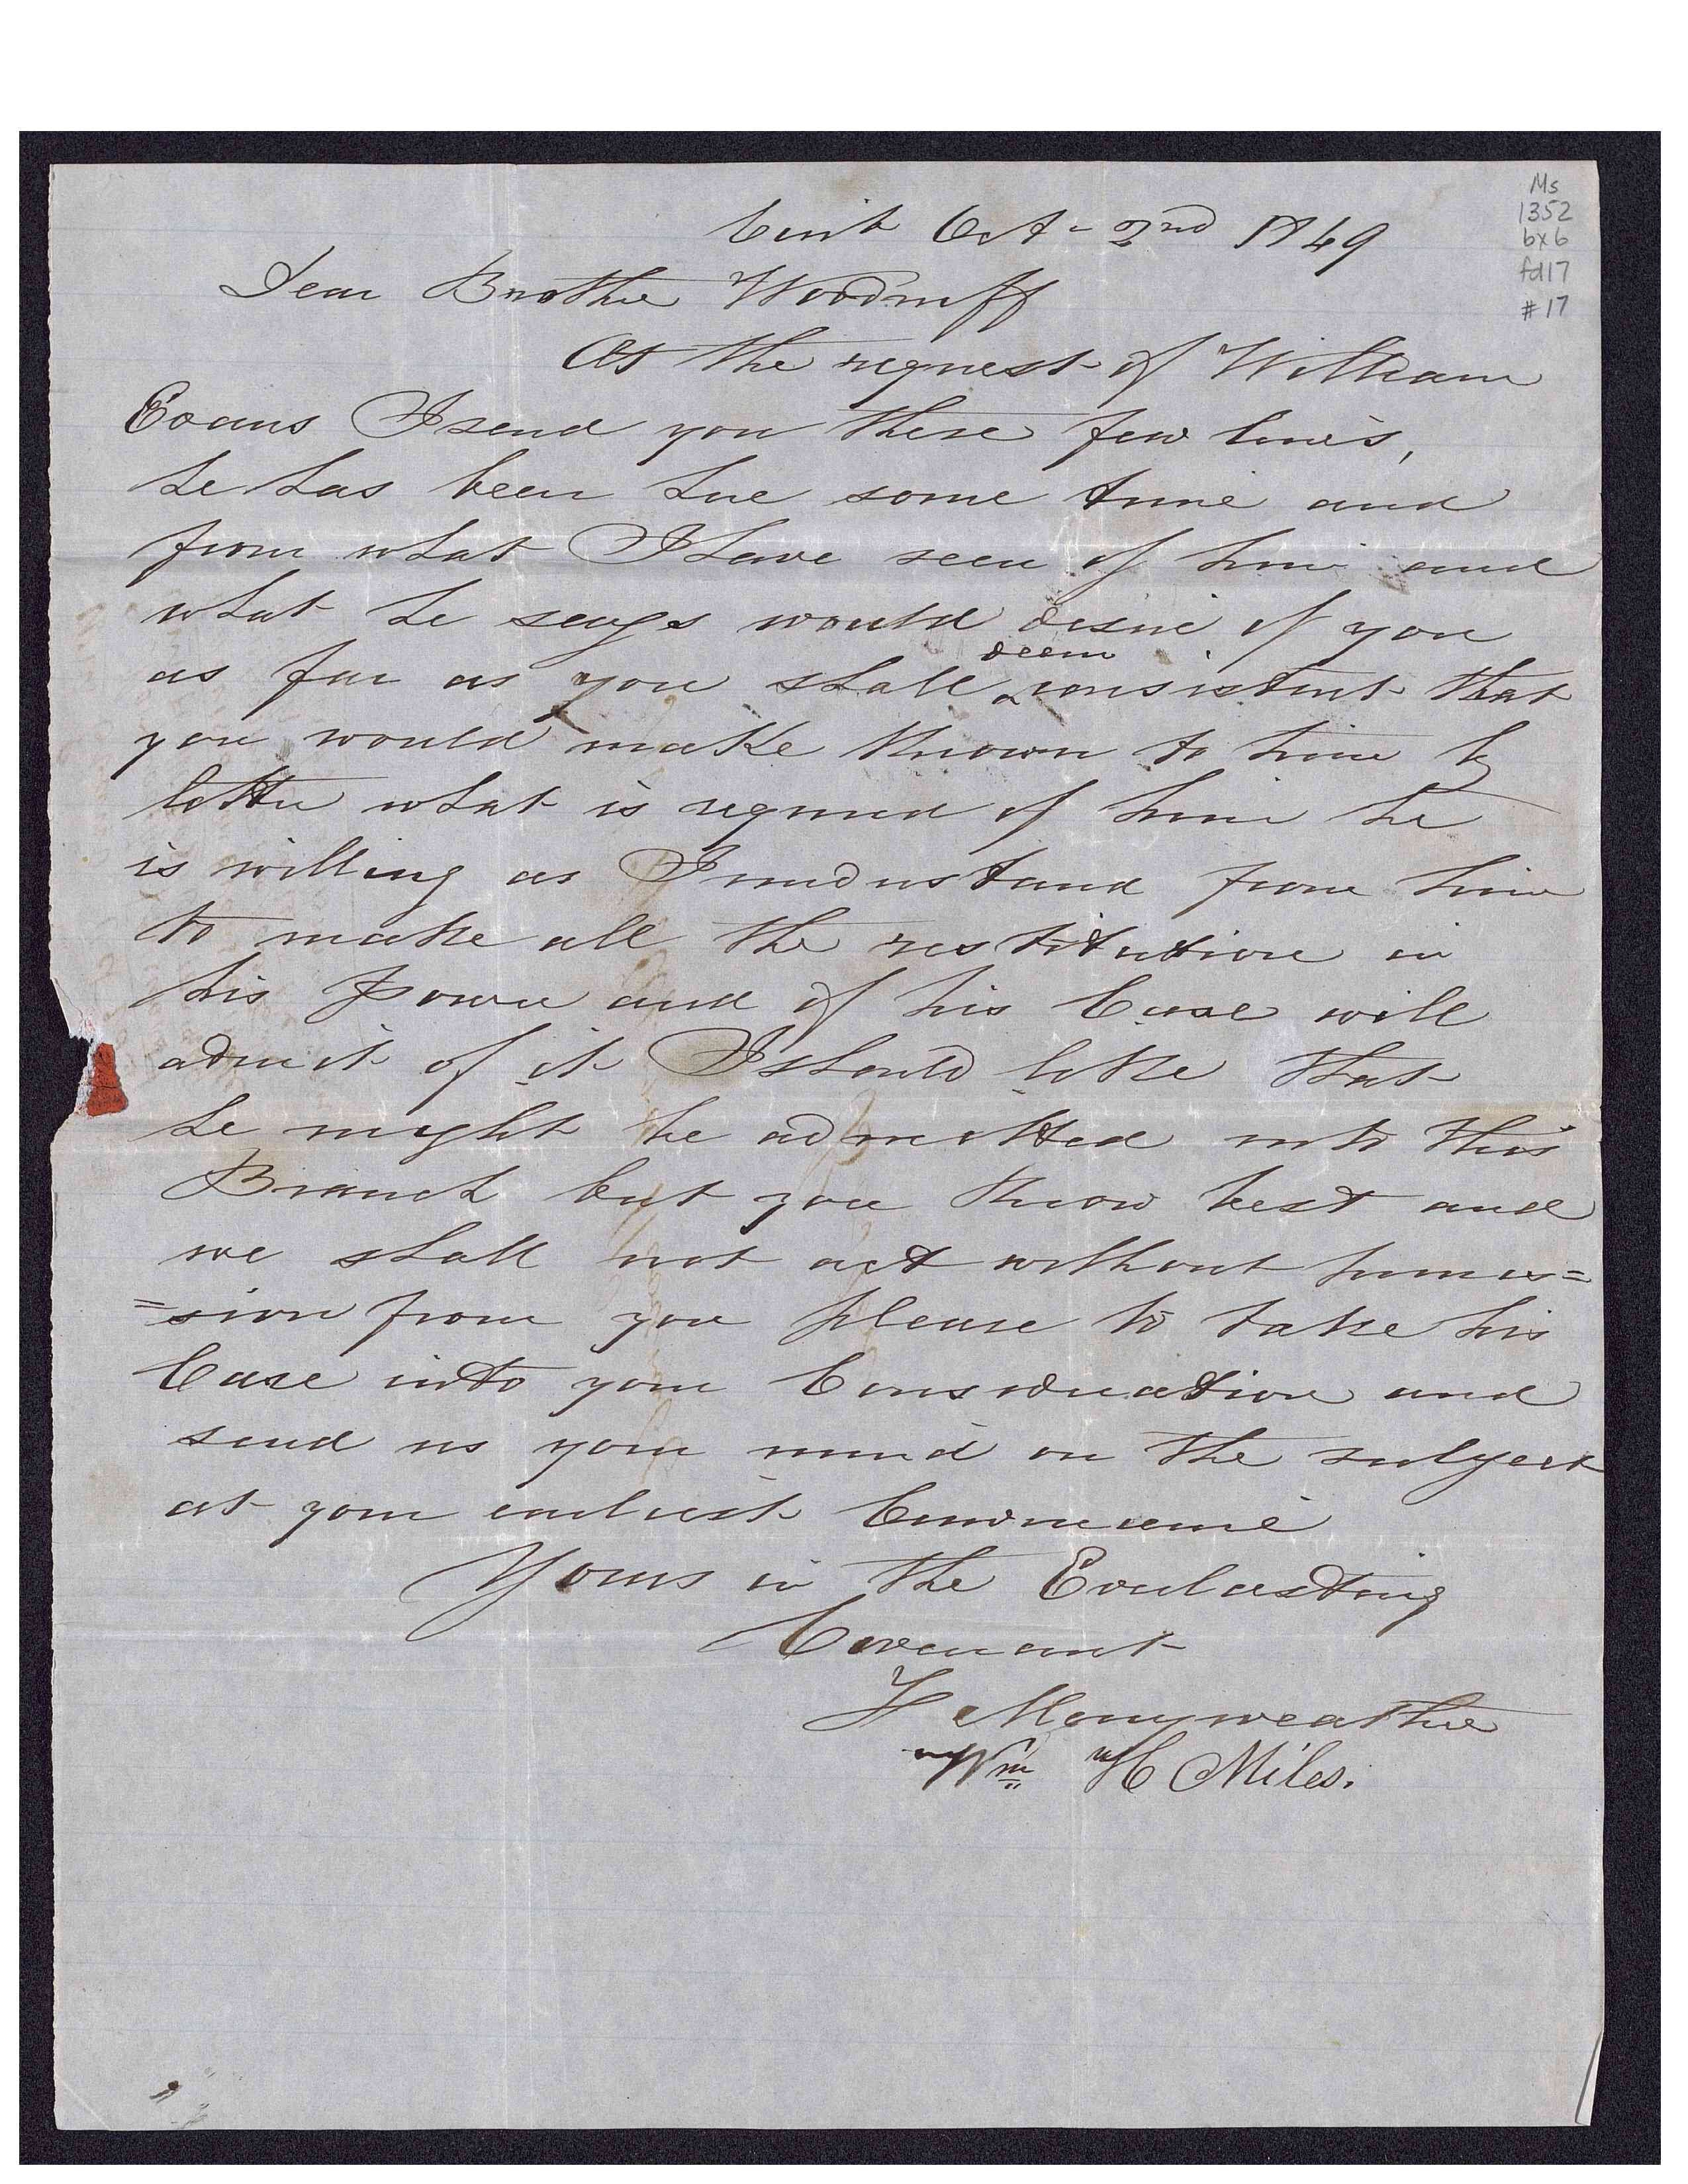 Cinti Oct - 2nd 1849
Ms
1352
bx 6
fd 17
# 17
Dear Brother Woodruff
At the request of William
Evans I send you these few lines,
he has been here some time and
from what I have seen of him and
what he says would desire of you
deem
as far as you shall ^ consistent that
you would make known to him by
letter what is required of him he
is willing as I understand from him
to make all the restitution in
his power and if his Case will
admit of it I should like that
he might be admitted into this
Branch but you know best and
we shall not act without permis=
=sion from you please to take his
Case into your Consideration and
send us your mind on the subject
at your earliest Convenience
Yours in the Everlasting
Covenant
F Merryweather
Wm H Miles.